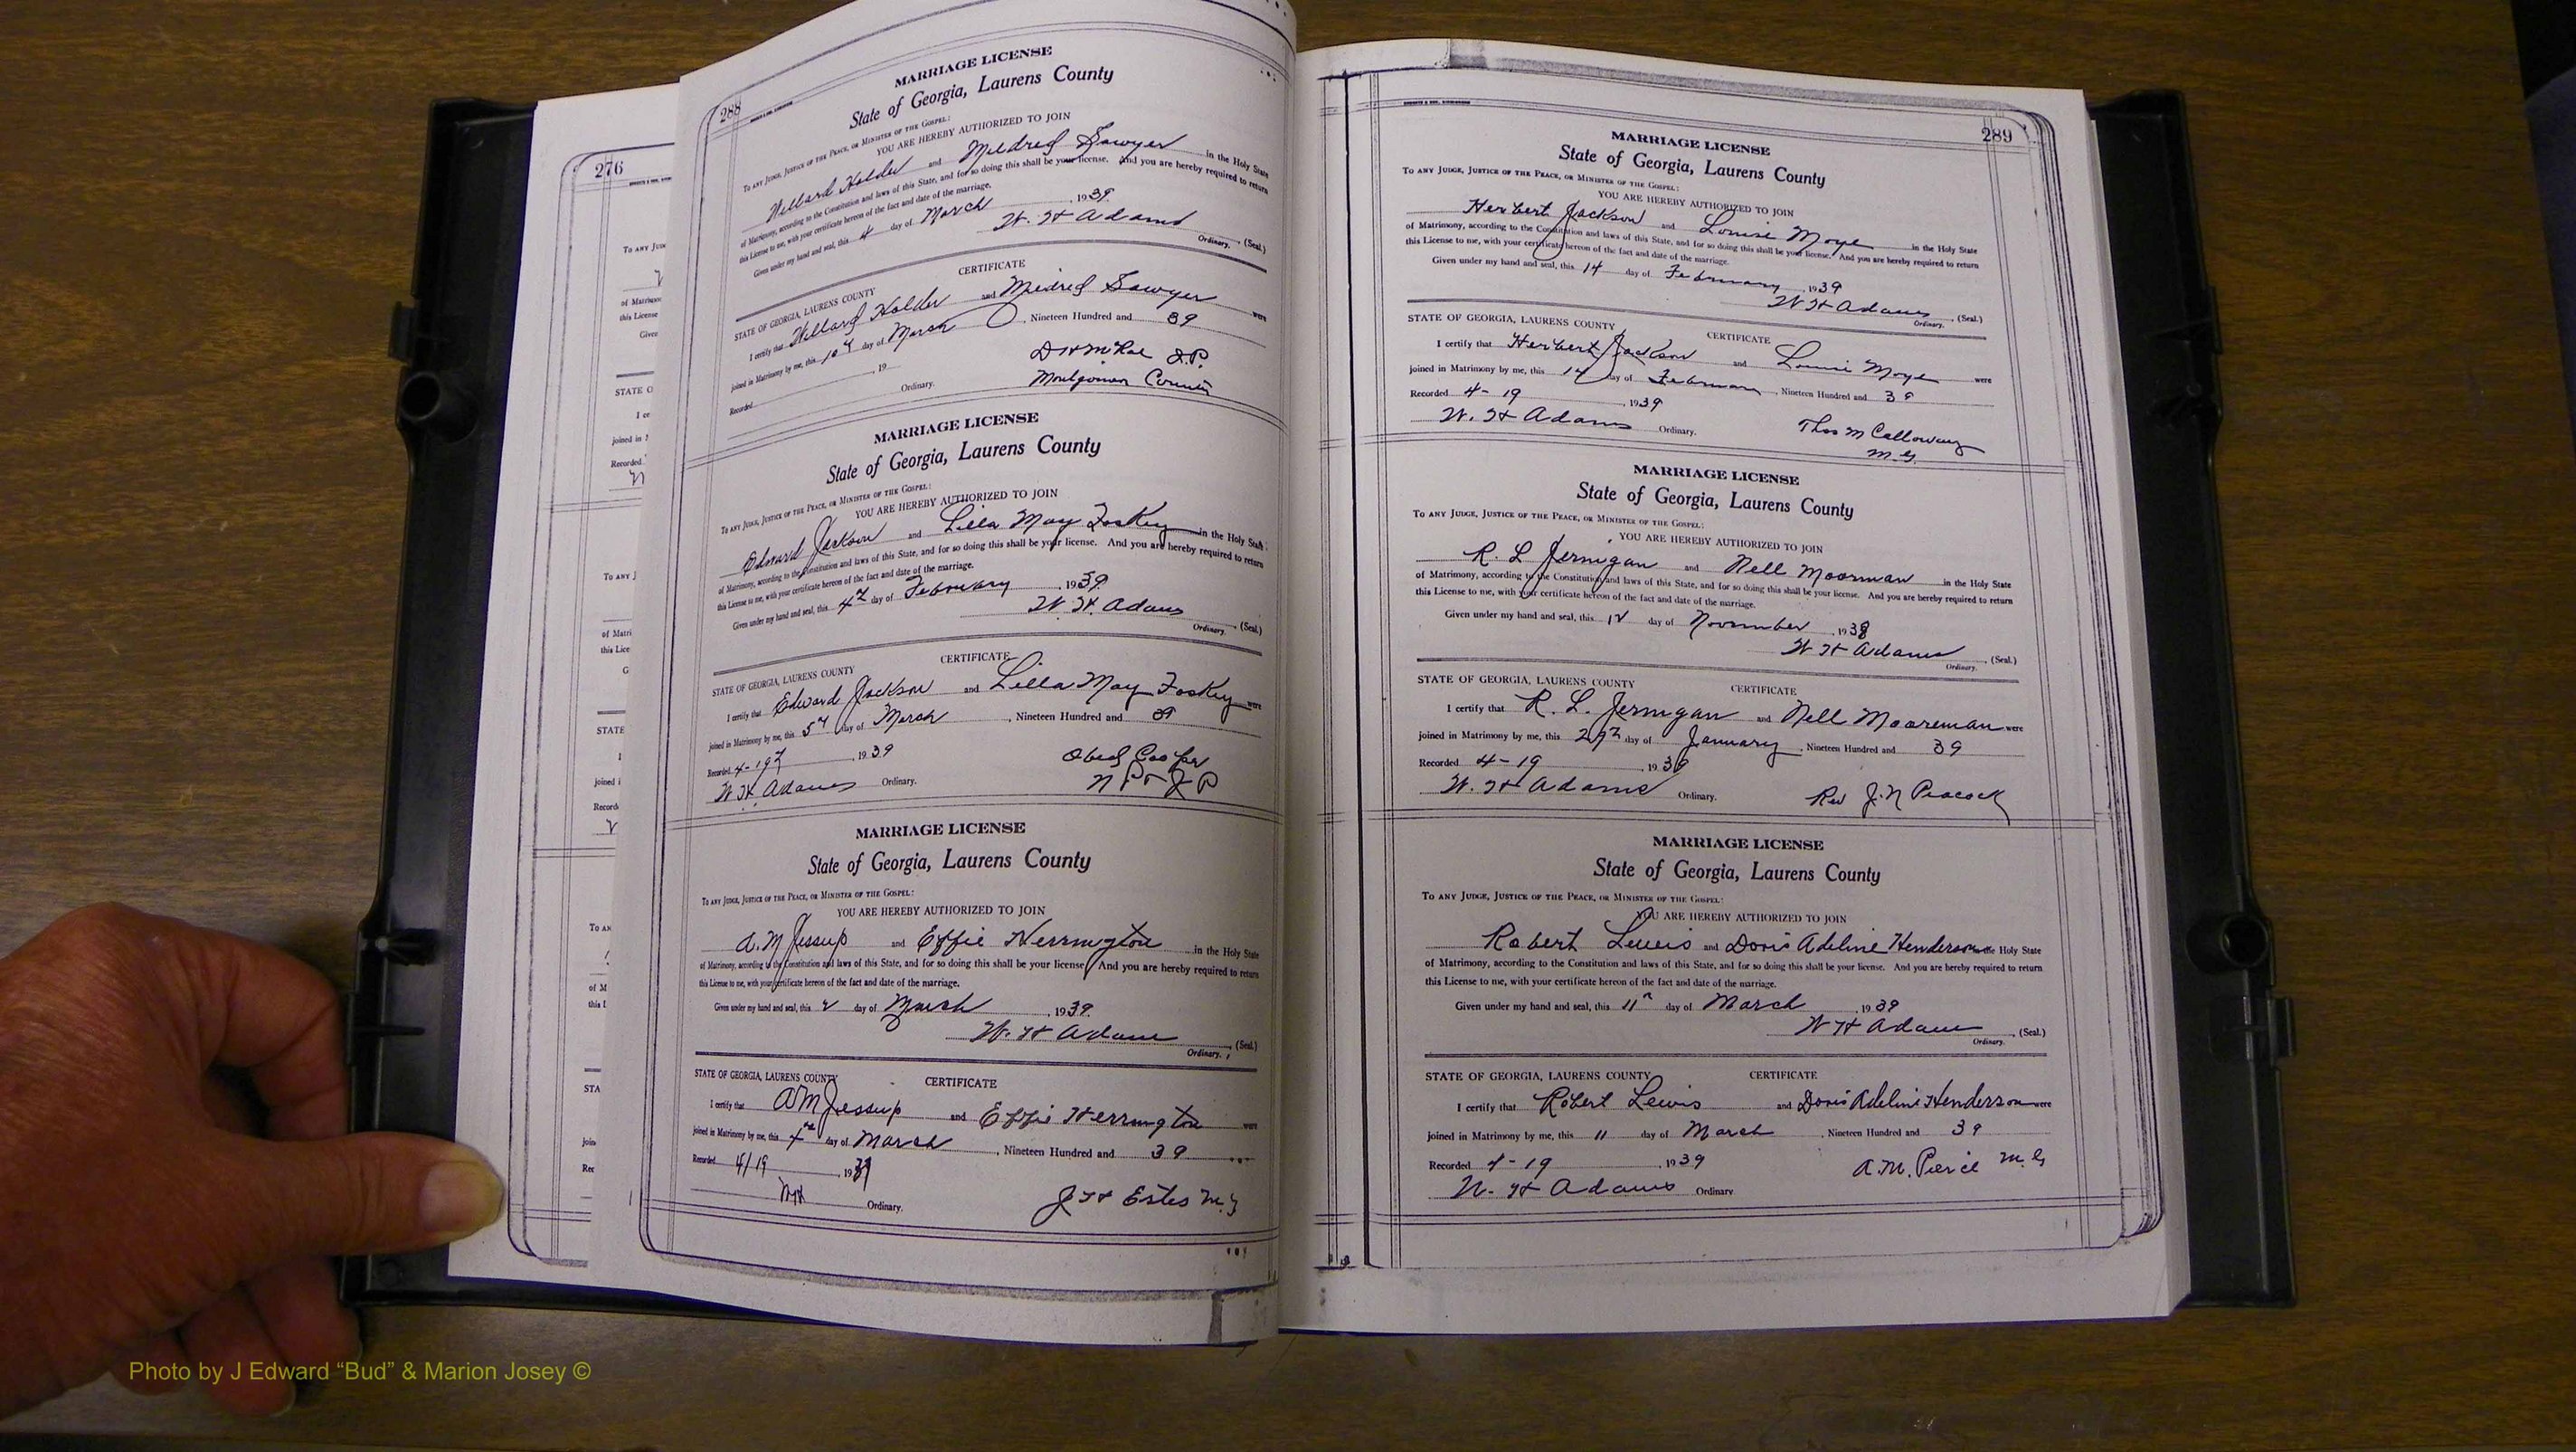 276
To any Jud
of Matrimo
this License
Given
STATE O
I ce
joined in
Recorded
To any J
of Matri
this Lice
G
STATE
joined i
Record
To an
of M
this L
STA
join
Rec
288
MARRIAGE LICENSE
State of Georgia, Laurens County
To any Judge, Justice of the Peace, or Minister of the Gospel:
YOU ARE HEREBY AUTHORIZED TO JOIN
Willard Holder and Mildred Sawyer in the Holy State
of Matrimony, according to the Constitution and laws of this State, and for so doing this shall be your license. And you are hereby required to return
this License to me, with your certificate hereon of the fact and date of the marriage.
Given under my hand and seal, this 4 day of March, 1939.
W. H Adams (Seal.)
Ordinary.
CERTIFICATE
STATE OF GEORGIA, LAURENS COUNTY
I certify that Willard Holder and Mildred Sawyer were
joined in Matrimony by me, this 10 day of March, Nineteen Hundred and 39
Recorded 19
Ordinary.
D H McRae J.P.
Montgomery County
MARRIAGE LICENSE
State of Georgia, Laurens County
To any Judge, Justice of the Peace, or Minister of the Gospel:
YOU ARE HEREBY AUTHORIZED TO JOIN
Edward Jackson and Lilla May Foskey in the Holy State
of Matrimony, according to the Constitution and laws of this State, and for so doing this shall be your license. And you are hereby required to return
this License to me, with your certificate hereon of the fact and date of the marriage.
Given under my hand and seal, this 4 day of February, 1939.
W. H. Adams (Seal.)
Ordinary.
CERTIFICATE
STATE OF GEORGIA, LAURENS COUNTY
I certify that Edward Jackson and Lilla May Foskey were
joined in Matrimony by me, this 5 day of March, Nineteen Hundred and 39
Recorded 4-19 1939
W H. Adams Ordinary.
N P & J P
MARRIAGE LICENSE
State of Georgia, Laurens County
To any Judge, Justice of the Peace, or Minister of the Gospel:
YOU ARE HEREBY AUTHORIZED TO JOIN
A. M Jessup and Effie Herrington in the Holy State
of Matrimony, according to the Constitution and laws of this State, and for so doing this shall be your license. And you are hereby required to return
this License to me, with your certificate hereon of the fact and date of the marriage.
Given under my hand and seal, this 2 day of March, 1939.
W. H Adams (Seal.)
Ordinary.
STATE OF GEORGIA, LAURENS COUNTY CERTIFICATE
I certify that A M Jessup and Effie Herrington were
joined in Matrimony by me, this day of March, Nineteen Hundred and 39
Recorded 4/19 1939
Ordinary.
J H Estes M.G
289
MARRIAGE LICENSE
State of Georgia, Laurens County
To any Judge, Justice of the Peace, or Minister of the Gospel:
YOU ARE HEREBY AUTHORIZED TO JOIN
Herbert Jackson and Louise Moye in the Holy State
of Matrimony, according to the Constitution and laws of this State, and for so doing this shall be your license. And you are hereby required to return
this License to me, with your certificate hereon of the fact and date of the marriage.
Given under my hand and seal, this 14 day of February, 1939
W H Adams (Seal.)
Ordinary.
STATE OF GEORGIA, LAURENS COUNTY CERTIFICATE
I certify that Herbert Jackson and Louise Moye were
joined in Matrimony by me, this 14 day of February, Nineteen Hundred and 39
Recorded 4-19, 1939
W. H Adams Ordinary.
Thos M Calloway
M.G.
MARRIAGE LICENSE
State of Georgia, Laurens County
To any Judge, Justice of the Peace, or Minister of the Gospel:
YOU ARE HEREBY AUTHORIZED TO JOIN
R. L Jernigan and Nell Moorman in the Holy State
of Matrimony, according to the Constitution and laws of this State, and for so doing this shall be your license. And you are hereby required to return
this License to me, with your certificate hereon of the fact and date of the marriage.
Given under my hand and seal, this 12 day of November, 1938
W H Adams (Seal.)
Ordinary.
STATE OF GEORGIA, LAURENS COUNTY CERTIFICATE
I certify that R. L. Jernigan and Nell Mooreman were
joined in Matrimony by me, this 29 day of January, Nineteen Hundred and 39
Recorded 4-19, 1939
W. H Adams Ordinary.
Rev J. N Peacock
MARRIAGE LICENSE
State of Georgia, Laurens County
To any Judge, Justice of the Peace, or Minister of the Gospel:
YOU ARE HEREBY AUTHORIZED TO JOIN
Robert Lewis and Doris Adeline Henderson in the Holy State
of Matrimony, according to the Constitution and laws of this State, and for so doing this shall be your license. And you are hereby required to return
this License to me, with your certificate hereon of the fact and date of the marriage.
Given under my hand and seal, this 11 day of March, 1939
W H Adams (Seal.)
Ordinary.
STATE OF GEORGIA, LAURENS COUNTY CERTIFICATE
I certify that Robert Lewis and Doris Adeline Henderson were
joined in Matrimony by me, this 11 day of March, Nineteen Hundred and 39
Recorded 4-19, 1939
W. H Adams Ordinary
A. M. Pierce M.G
Photo by J Edward “Bud” & Marion Josey ©